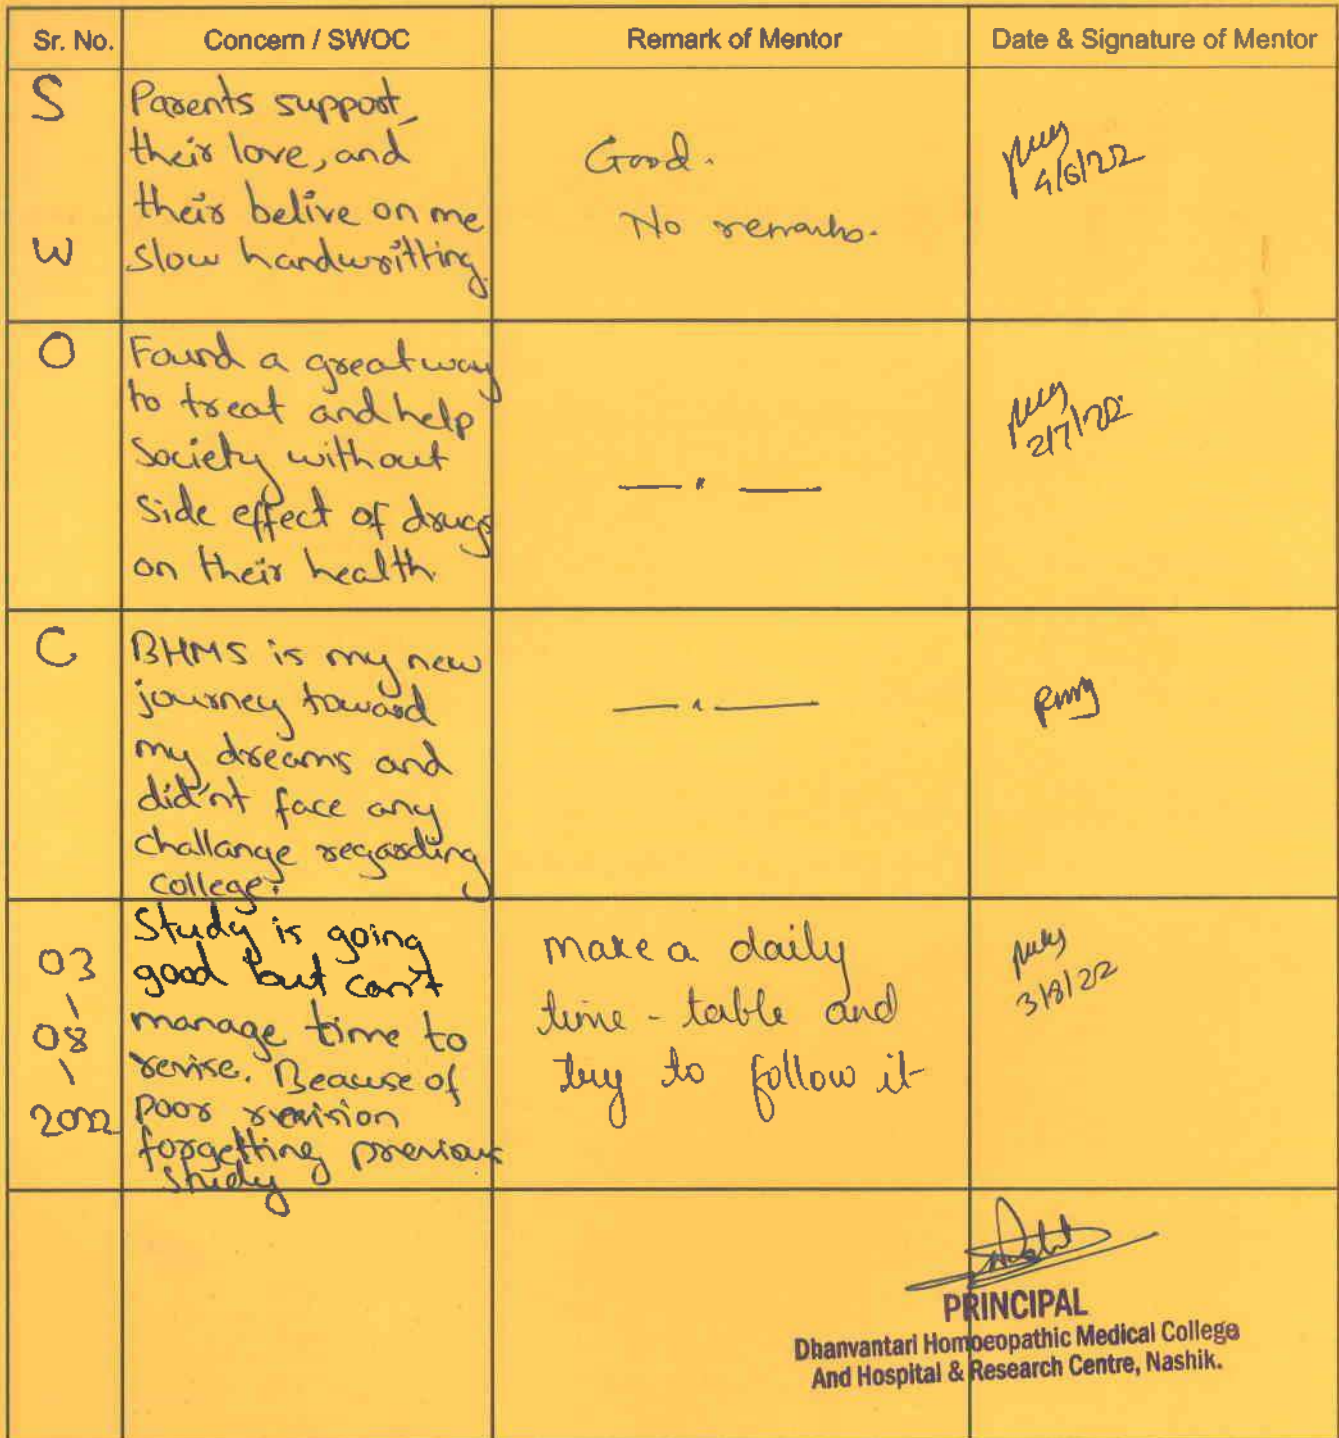 Sr. No. Concern / SWOC Remark of Mentor Date & Signature of Mentor
S Parents support,
their love, and
their belive on me
W slow handwritting.
Good.
No remarks.
4/6/22
O Found a great way
to treat and help
Society without
Side effect of drugs
on their health
— " —
2/7/22
C BHMS is my new
journey toward
my dreams and
did'nt face any
challange regarding
college.
— " —
03
\
08
\
2022
Study is going
good but can't
manage time to
revise. Beause of
poor revision
forgetting previous
study
make a daily
time - table and
try to follow it
3/8/22
PRINCIPAL
Dhanvantari Homoeopathic Medical College
And Hospital & Research Centre, Nashik.